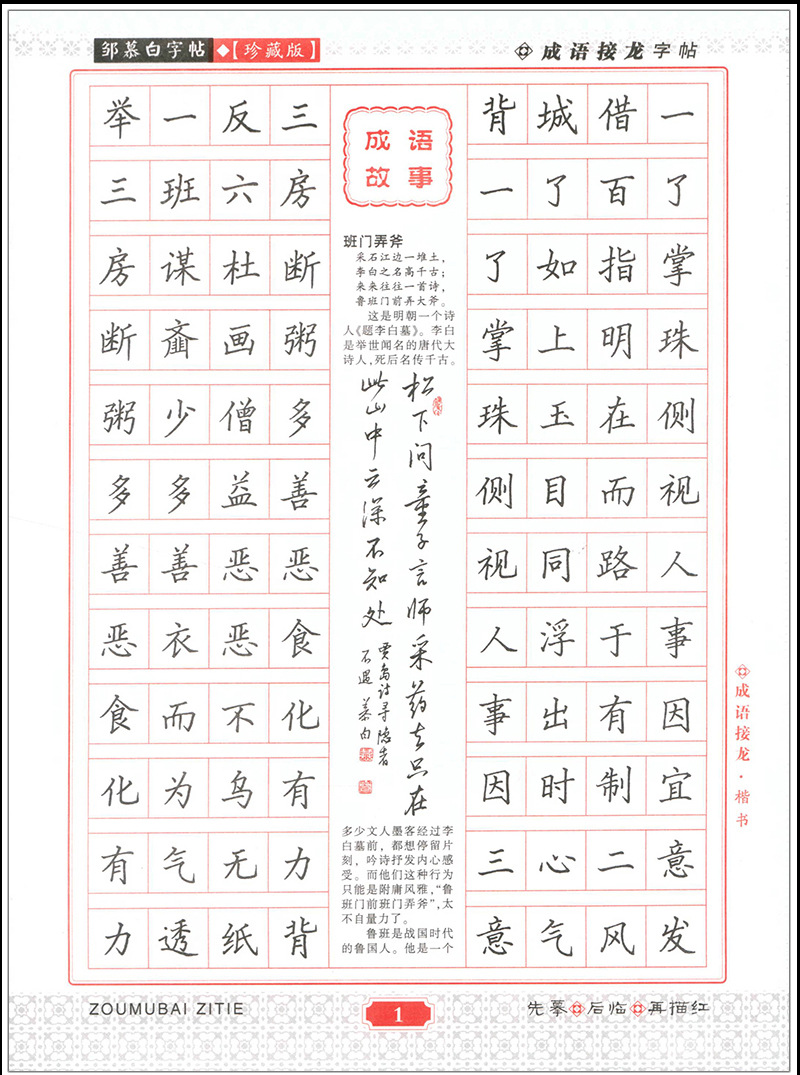 邹慕白字帖
【珍藏版】
成语接龙字帖
举一反三
三班六房
房谋杜断
断齑画粥
粥少僧多
多多益善
善善恶恶
恶衣恶食
食而不化
化为乌有
有气无力
力透纸背
成语
故事
班门弄斧
采石江边一堆土，
李白之名高千古；
来来往往一首诗，
鲁班门前弄大斧。
这是明朝一个诗
人《题李白墓》。李白
是举世闻名的唐代大
诗人，死后名传千古。
松下问童子言师采药去只在
此山中云深不知处
贾岛诗寻隐者
不遇 慕白
多少文人墨客经过李
白墓前，都想停留片
刻，吟诗抒发内心感
受。而他们这种行为
只能是附庸风雅，“鲁
班门前班门弄斧”，太
不自量力了。
鲁班是战国时代
的鲁国人。他是一个
背城借一
一了百了
了如指掌
掌上明珠
珠玉在侧
侧目而视
视同路人
人浮于事
事出有因
因时制宜
三心二意
意气风发
成语接龙·楷书
ZOUMUBAI ZITIE
1
先摹 后临 再描红